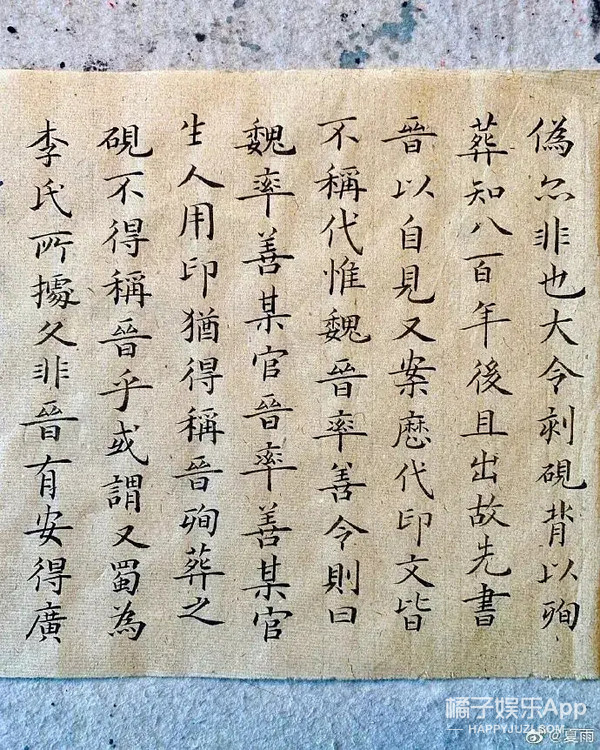 偽亦非也大令刻硯背以殉
葬知八百年後且出故先書
晉以自見又案歷代印文皆
不稱代惟魏晉率善令則曰
魏率善某官晉率善某官
生人用印猶得稱晉殉葬之
硯不得稱晉乎或謂又蜀為
李氏所據久非晉有安得廣
橘子娱乐App
HAPPYJUZI.COM
@夏雨